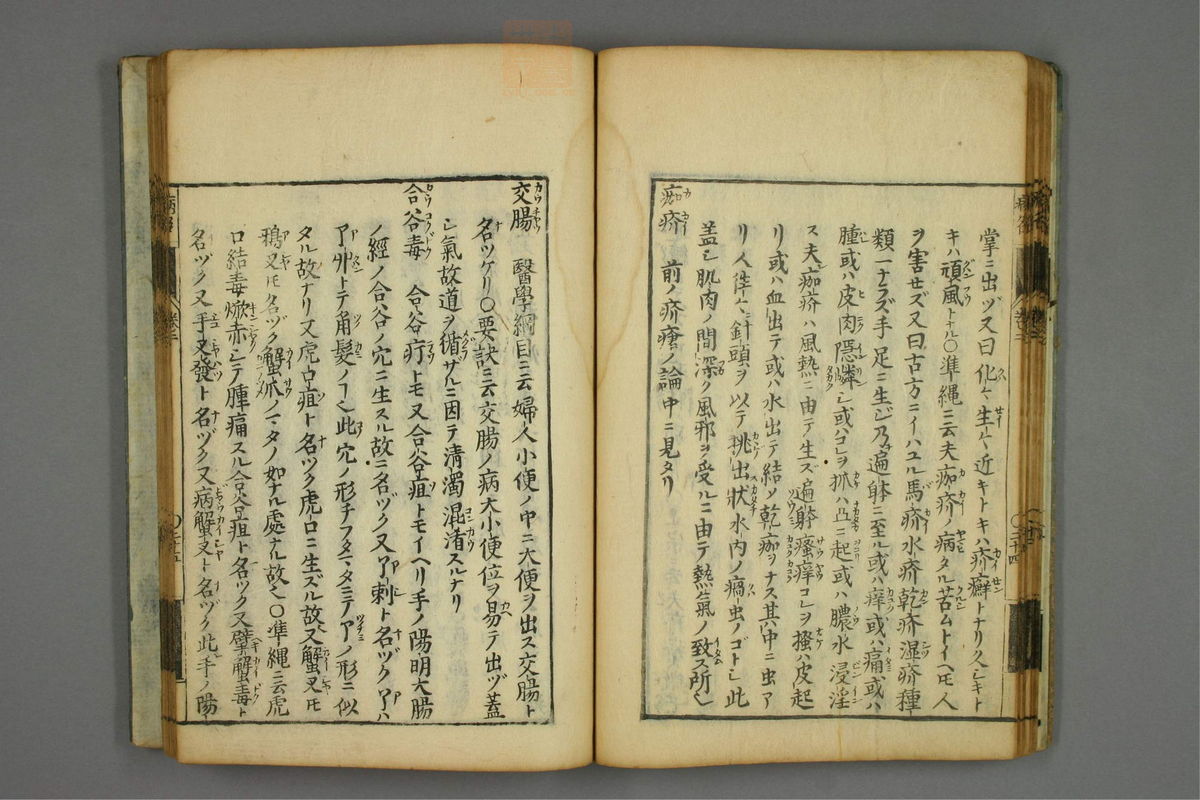 掌ニ出ヅ又曰化〻生〻近キトキハ疥癬トナリ久シキト
キハ頑風トナル○準縄ニ云夫痂疥ノ病タル苦ムトイヘ𪜈人
ヲ害セズ又曰古方ニイハユル馬疥水疥乾疥湿疥種
類一ナラズ手足ニ生ジ乃遍躰ニ至ル或ハ痒或ハ痛或ハ
腫或ハ皮肉隠憐シ或ハコレヲ抓ハ凸ニ起或ハ膿水浸淫
ス夫痂疥ハ風熱ニ由テ生ズ遍躰瘙痒コレヲ搔ハ皮起
リ或ハ血出テ或ハ水出テ結ソ乾痂ヲナス其中ニ虫ア
リ人往〻針頭ヲ以テ挑出狀水内ノ虫ノゴトシ此
蓋シ肌肉ノ間深ク風邪ヲ受ルニ由テ熱氣ノ致ス所也
痂疥 前ノ疥瘡ノ論中ニ見タリ
交腸 醫學綱目ニ云婦人小便ノ中ニ大便ヲ出ス交腸ト
名ツケリ○要訣ニ云交腸ノ病大小便位ヲ易テ出ヅ蓋
シ氣故道ヲ循ザルニ因テ清濁混淆スルナリ
合谷毒 合谷疔トモ又合谷疽トモイヘリ手ノ陽明大腸
ノ經ノ合谷ノ穴ニ生スル故ニ名ヅク又丫刺ト名ヅク丫ハ
丱トテ角髮ノコ也此穴ノ形チフタマタニテ丫ノ形ニ似
タル故ナリ又虎口疽ト名ツク虎口ニ生ズル故又蟹叉𪜈
鴉叉𪜈名ヅク蟹爪ノマタノ如ナル處ナル故也○準縄ニ云虎
口結毒焮赤シテ腫痛スル合谷疽ト名ツク又擘蟹毒ト
名ヅク又手叉發ト名ヅク又病蟹叉ト名ヅク此手ノ陽